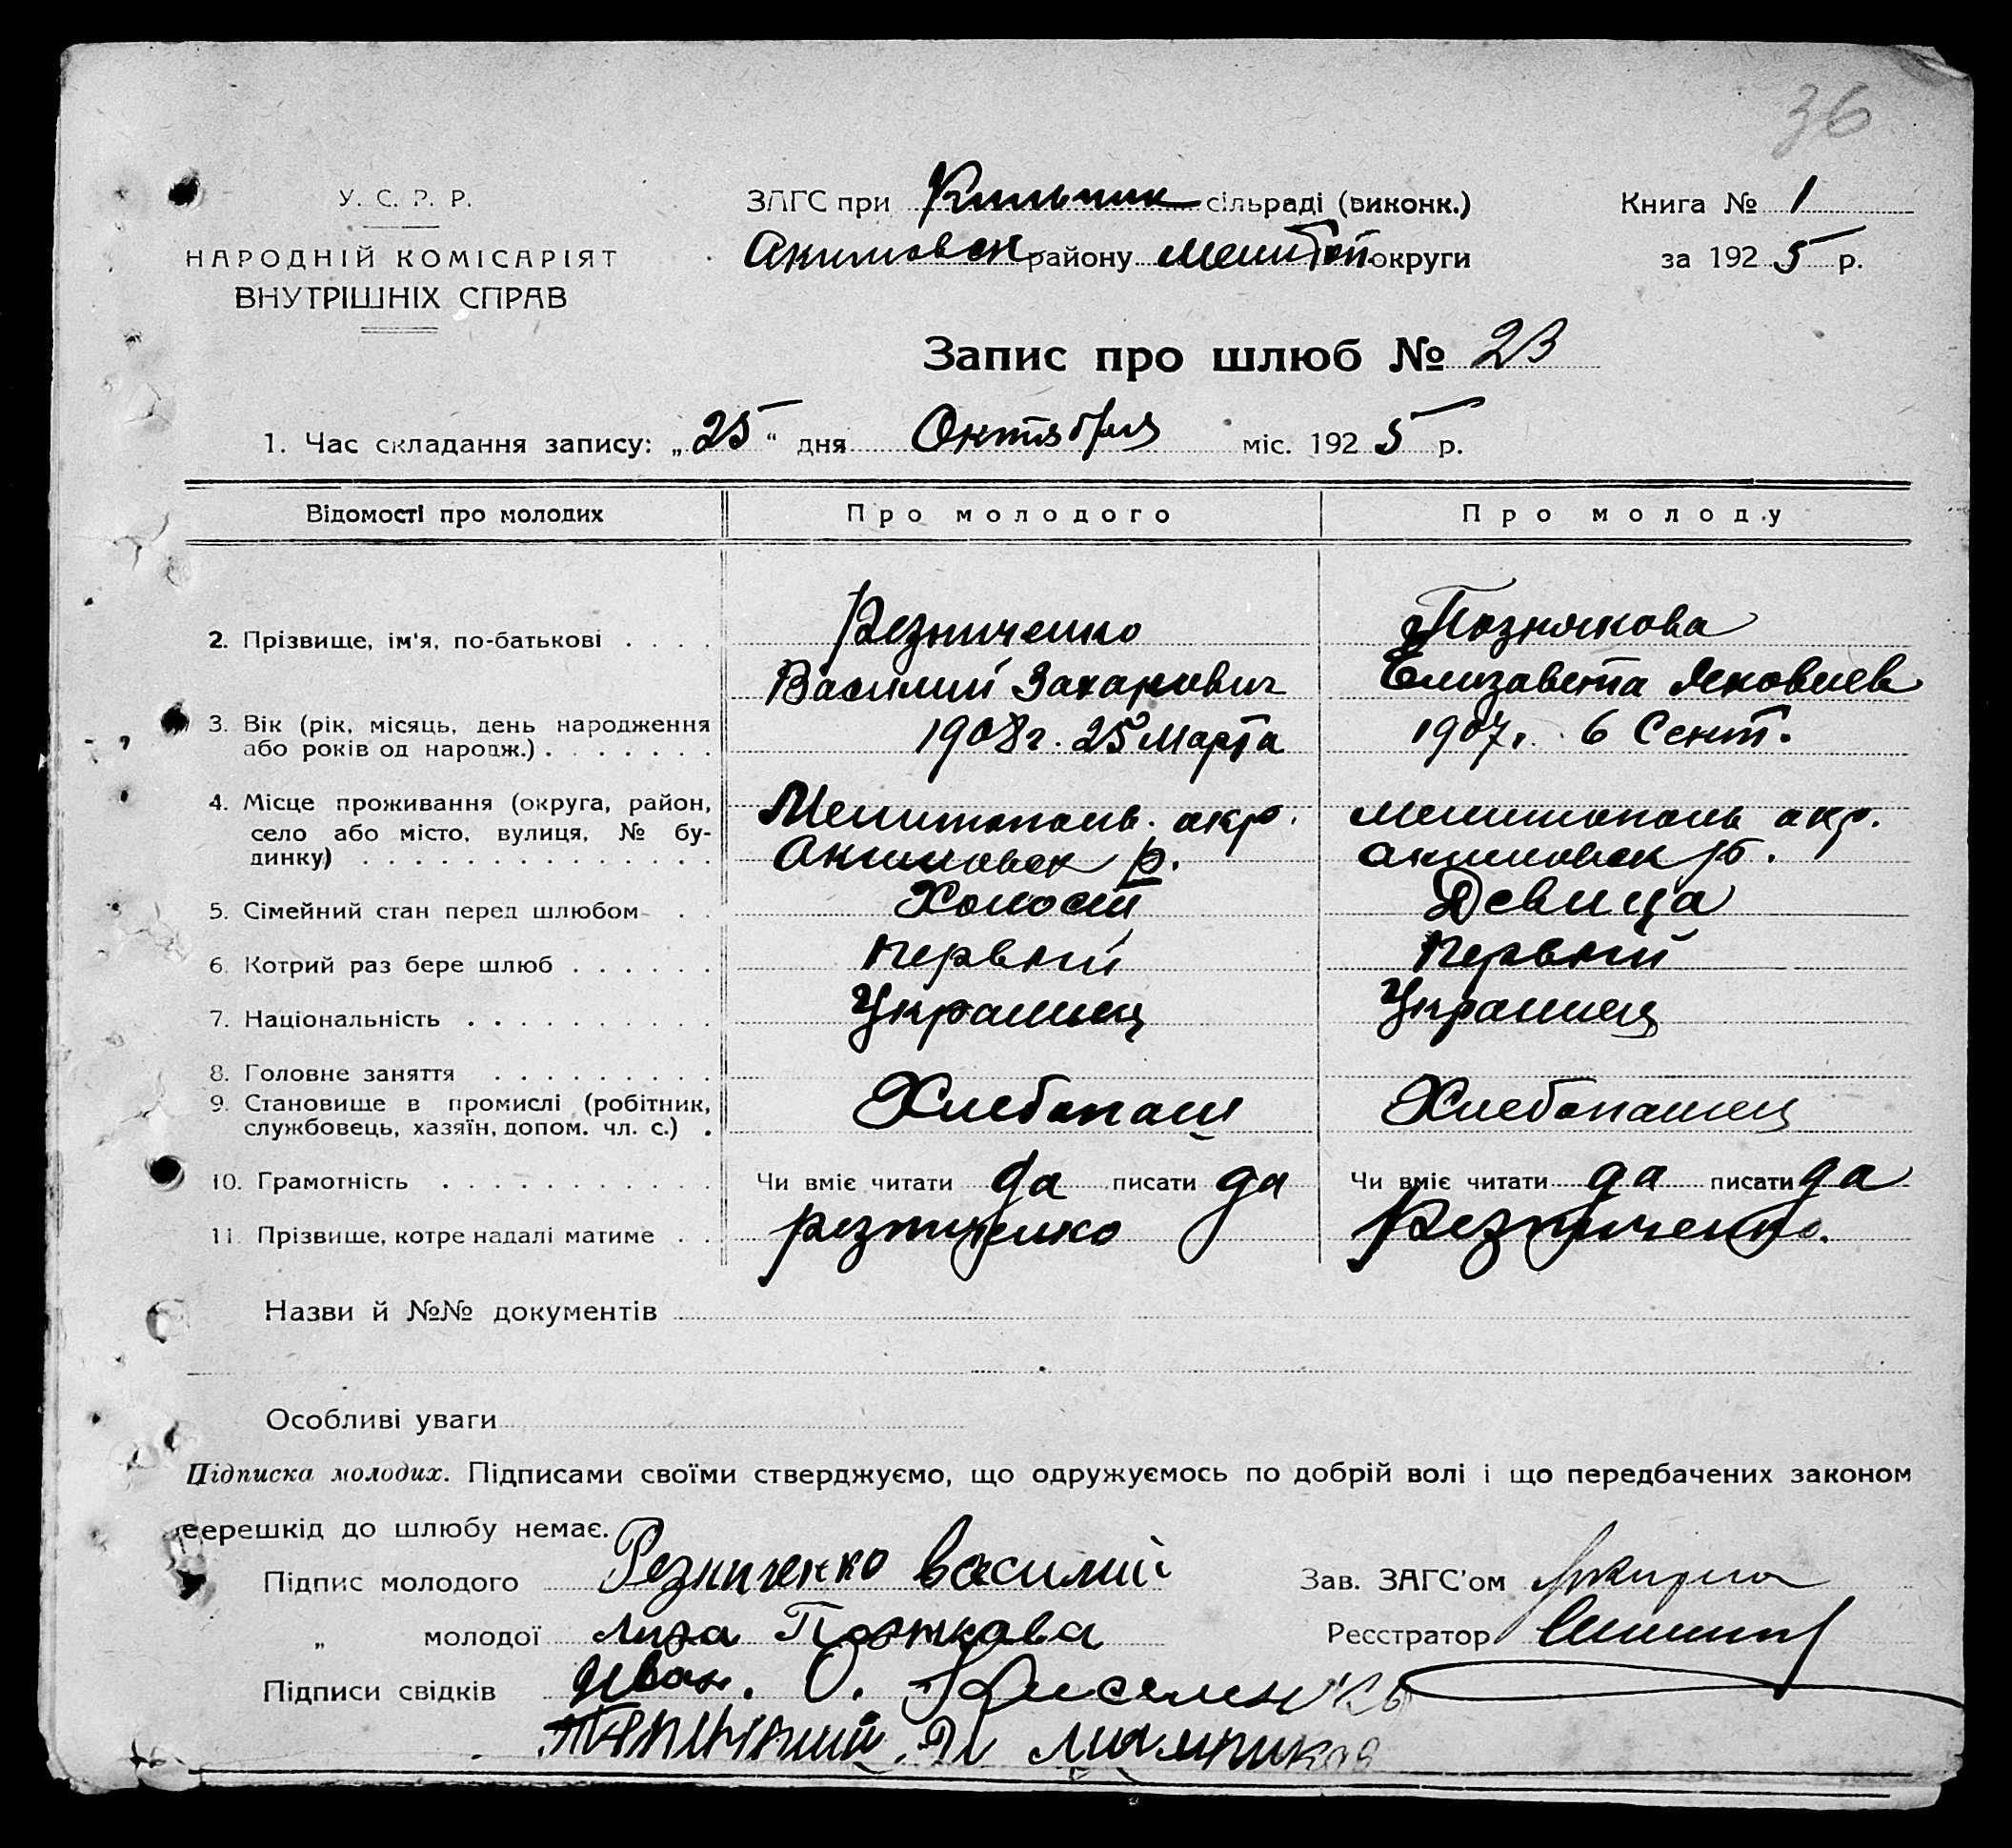 36
У. С. Р. Р.
НАРОДНІЙ КОМІСАРІЯТ
ВНУТРІШНІХ СПРАВ
ЗАГС при сільраді (виконк.)
Акимовск району Мелитоп округи
Книга № 1
за 1925 р.
Запис про шлюб № 23
1. Час складання запису: „25“ дня Октября міс. 1925 р.
Відомості про молодих Про молодого Про молоду
2. Прізвище, ім'я, по-батькові . . . . Резниченко Познякова
Василий Захарович Елизавета Яковлев
3. Вік (рік, місяць, день народження 1908 г. 25 Марта 1907 г. 6 Сент.
або років од народж.) . . . . . . .
4. Місце проживання (округа, район, Мелитополь. окр. Мелитополь окр.
село або місто, вулиця, № бу-
динку) . . . . . . . . . . . . . . Акимовск р. Акимовск р.
5. Сімейний стан перед шлюбом . . Холост Девица
6. Котрий раз бере шлюб . . . . . . первый первый
7. Національність . . . . . . . . . . Украинец Украинец
8. Головне заняття . . . . . . . . .
9. Становище в промислі (робітник, Хлебопаш Хлебопашец
службовець, хазяїн, допом. чл. с.) .
10. Грамотність . . . . . . . . . . . Чи вміє читати да писати да Чи вміє читати да писати да
11. Прізвище, котре надалі матиме . . Резниченко Резниченко.
Назви й №№ документів
Особливі уваги
Підписка молодих. Підписами своїми стверджуємо, що одружуємось по добрій волі і що передбачених законом
перешкід до шлюбу немає.
Підпис молодого Резниченко Василий Зав. ЗАГС'ом
„ молодої Лиза Познкова Реєстратор
Підписи свідків Иван. О.